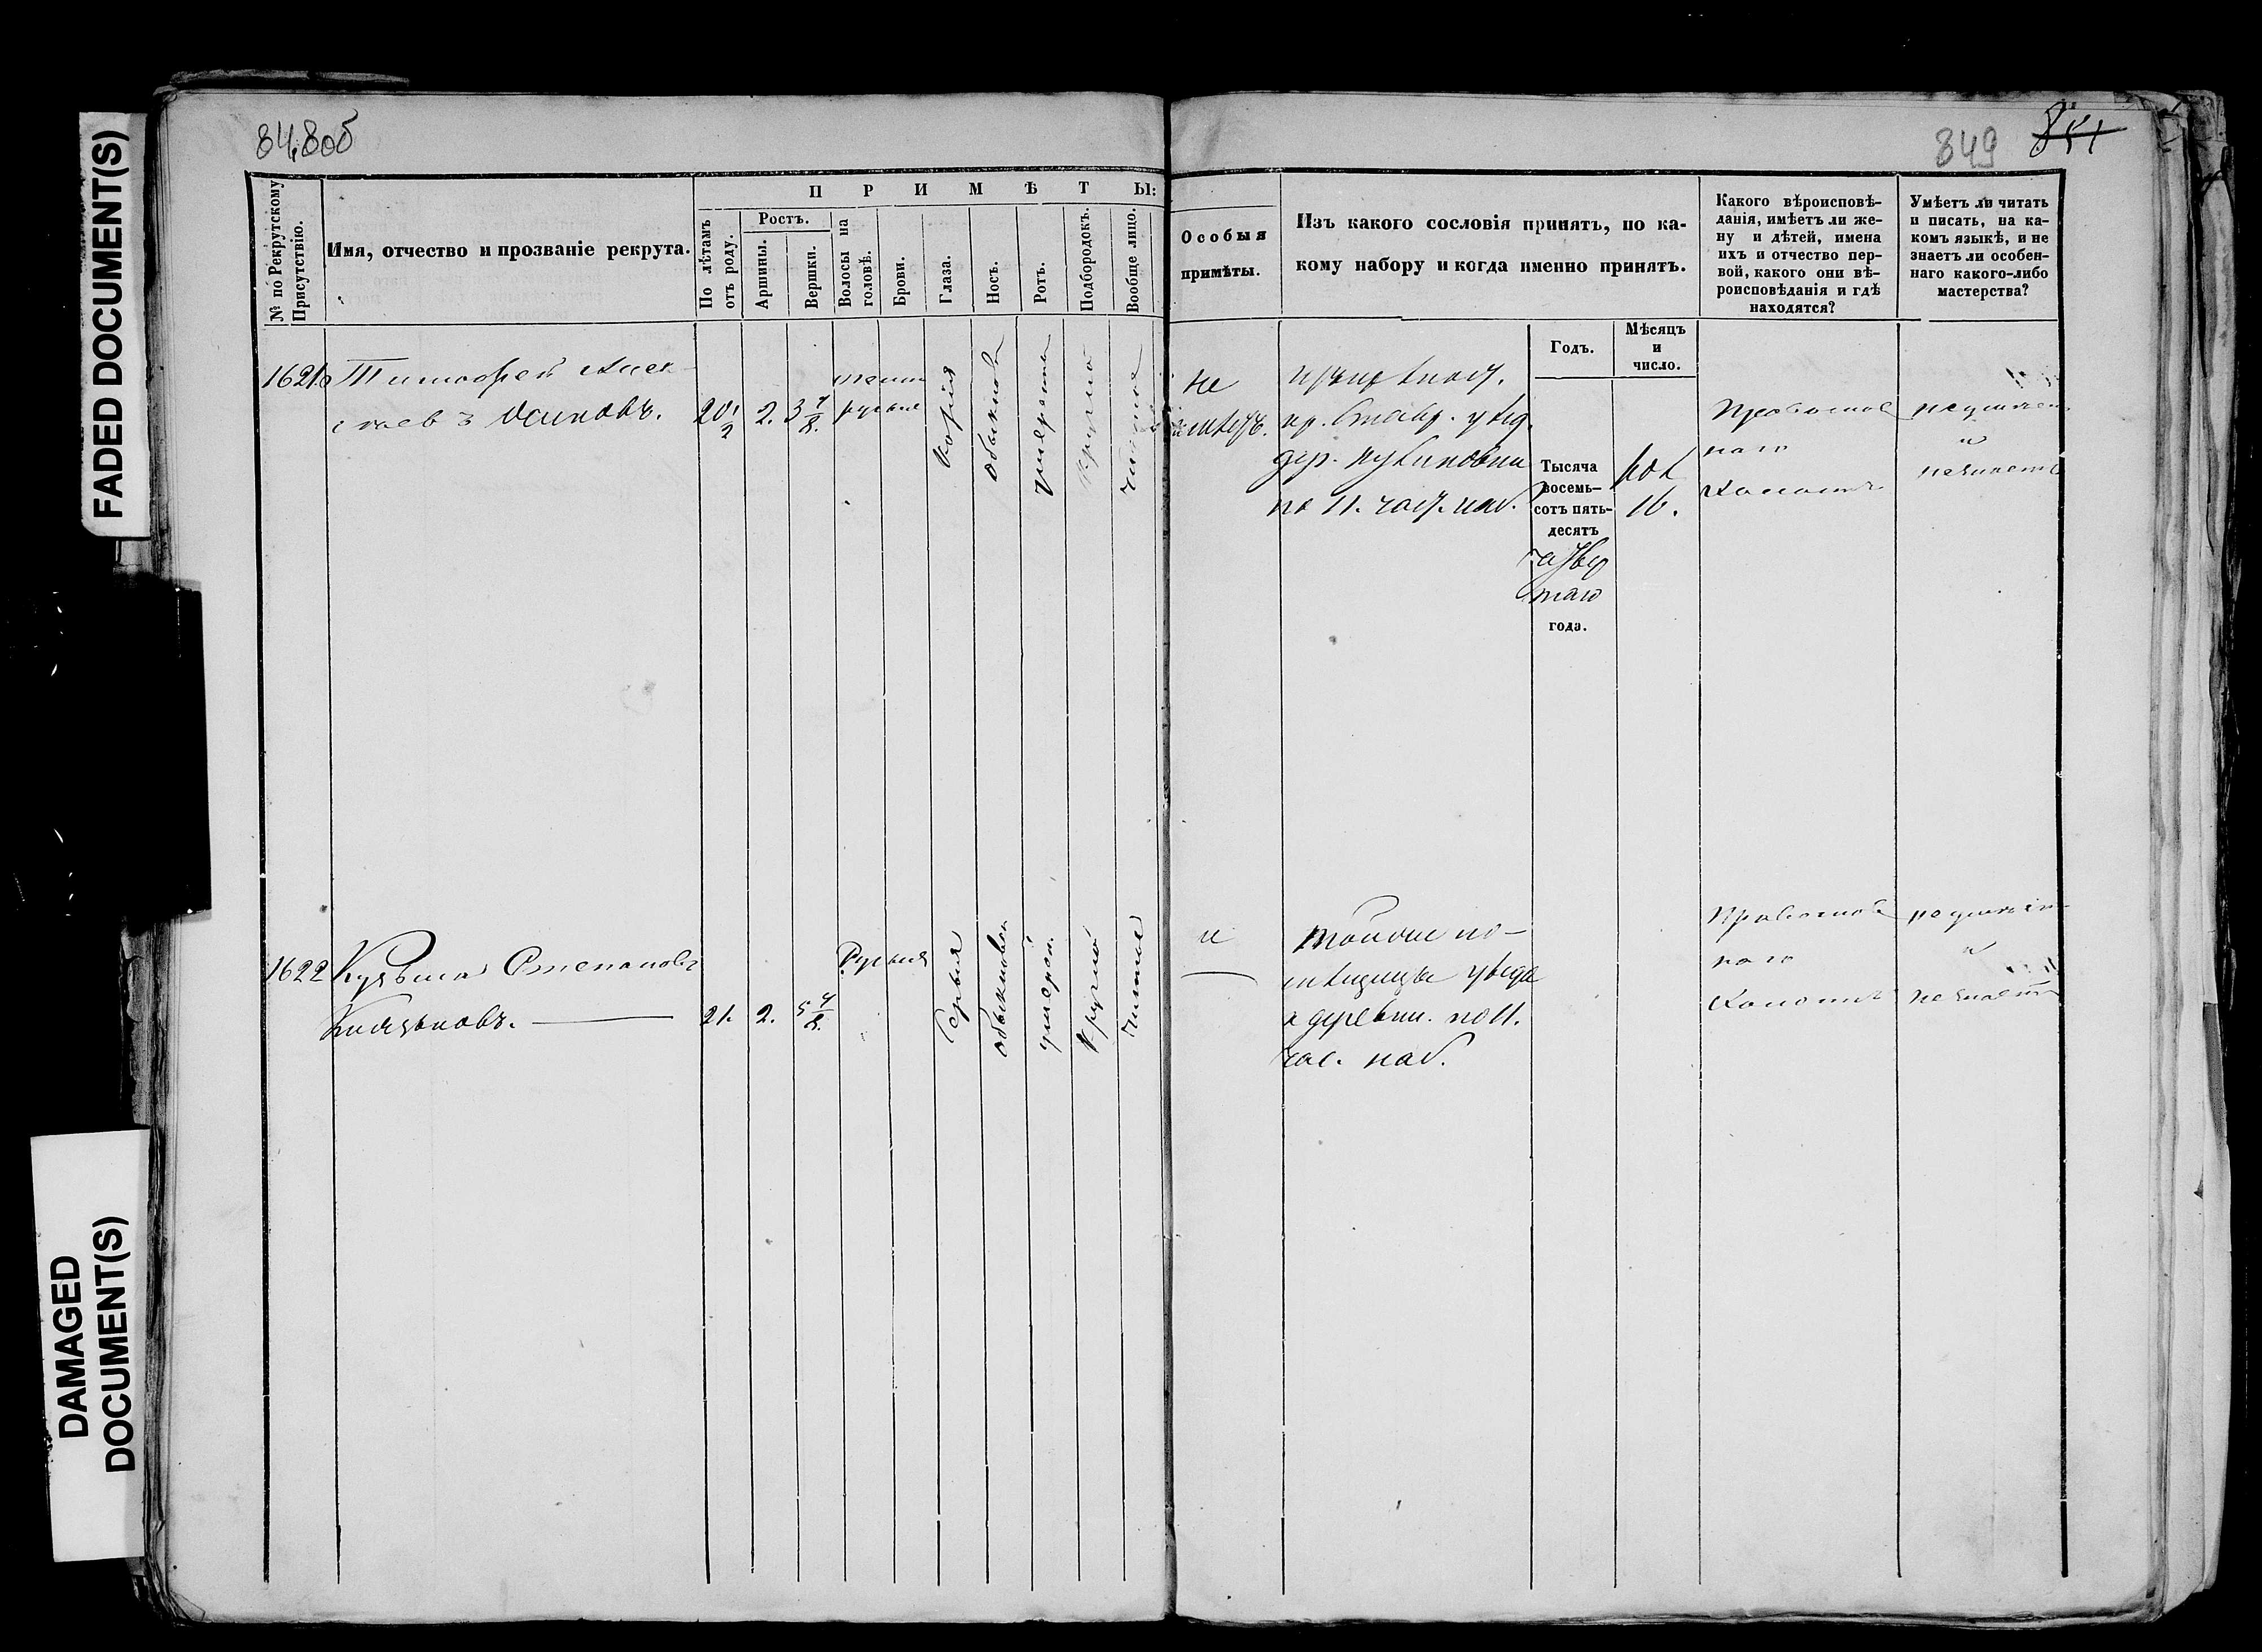 FADED DOCUMENT(S)
DAMAGED
DOCUMENT(S)
848об
849 851
№ по Рекрутскому
Присутствію.
Имя, отчество и прозваніе рекрута.
ПРИМѢТЫ:
По лѣтамъ
отъ роду.
Ростъ.
Аршины.
Вершки.
Волосы на
головѣ.
Брови.
Глаза.
Носъ.
Ротъ.
Подбородокъ.
Вообще лицо.
Особыя
примѣты.
Изъ какого сословія принятъ, по ка-
кому набору и когда именно принятъ.
Годъ.
Мѣсяцъ
и
число.
Какого вѣроисповѣ-
данія, имѣетъ ли же-
ну и дѣтей, имена
ихъ и отчество пер-
вой, какого они вѣ-
роисповѣданія и гдѣ
находятся?
Умѣетъ ли читать
и писать, на ка-
комъ языкѣ, и не
знаетъ ли особен-
наго какого-либо
мастерства?
1621
Тимофей Алек
Осиповъ.
20 1/2
2.
3 4/8.
темно
русыя
карія
обыкнов
умеренны
кругло
чистое
не
имѣетъ.
кр. Ставр. уѣзд.
дер.
по 11. част. наб.
Тысяча
восемь-
сотъ пять-
десятъ
четвер
таго
года.
16.
Православ
наго
Холостъ
неумѣет
и
незнаетъ
1622
Кузьма Степановъ
Князьковъ.
21.
2.
5 4/8.
Русыя
Серыя
обыкновен
умерен.
кругло
чистое
и
тойже по-
мѣщицы уѣзда
и деревни. по 11.
час. наб.
Православ
наго
Холостъ
неумѣет
и
незнаетъ